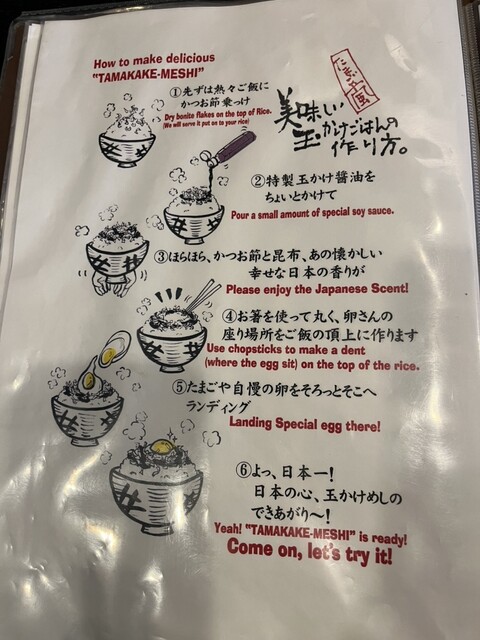 How to make delicious
"TAMAKAKE-MESHI"
たまごや風
美味しい
玉かけごはんの
作り方。
①先ずは熱々ご飯に
かつお節乗っけ
Dry bonite flakes on the top of Rice.
(We will serve it put on to your rice)
②特製玉かけ醤油を
ちょいとかけて
Pour a small amount of special soy sauce.
③ほらほら、かつお節と昆布、あの懐かしい
幸せな日本の香りが
Please enjoy the Japanese Scent!
④お箸を使って丸く、卵さんの
座り場所をご飯の頂上に作ります
Use chopsticks to make a dent
(where the egg sit) on the top of the rice.
⑤たまごや自慢の卵をそろっとそこへ
ランディング
Landing Special egg there!
⑥よっ、日本一!
日本の心、玉かけめしの
できあがり〜!
Yeah! "TAMAKAKE-MESHI" is ready!
Come on, let's try it!